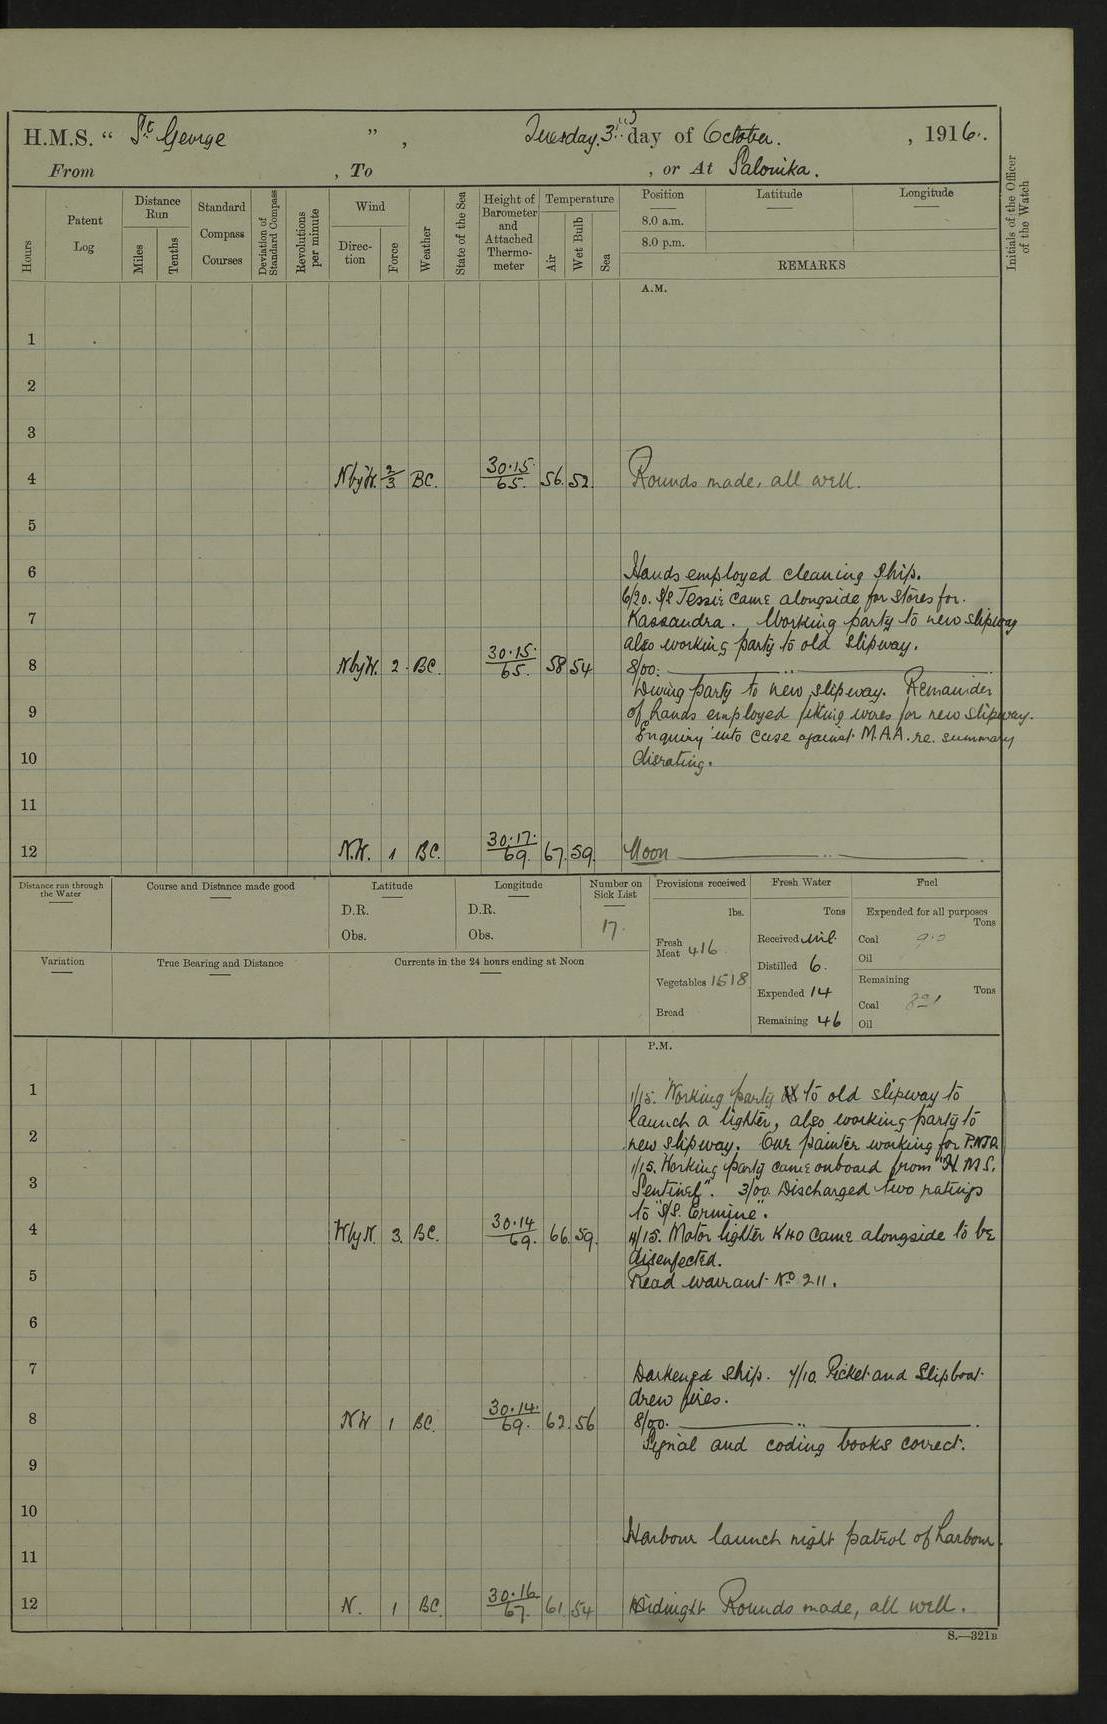 H.M.S. “ St George ” , Tuesday. 3rd day of October. , 1916.
From , To , or At Salonika.
Hours
Patent Log
Distance Run
Miles
Tenths
Standard Compass Courses
Deviation of Standard Compass
Revolutions per minute
Wind
Direction
Force
Weather
State of the Sea
Height of Barometer and Attached Thermometer
Temperature
Air
Wet Bulb
Sea
Position
Latitude
Longitude
8.0 a.m.
8.0 p.m.
REMARKS
Initials of the Officer of the Watch
A.M.
1
2
3
4 NbyW. 2/3 BC. 30.15. 65. 56. 52. Rounds made, all well.
5
6 Hands employed cleaning ship.
6/20. S/S Jessie came alongside for stores for.
7 Kassandra. Working party to new slipway
also working party to old slipway.
8 NbyW. 2. BC. 30.15. 65. 58 54 8/00.
Diving party to new slipway. Remainder
9 of hands employed fitting wires for new slipway.
Enquiry into case against M.A.A. re. summary
10 disrating.
11
12 N.W. 1 BC. 30.17. 69. 67. 59. Noon
Distance run through the Water
Course and Distance made good
Latitude
D.R.
Obs.
Longitude
D.R.
Obs.
Number on Sick List
17.
Provisions received
lbs.
Fresh Meat 416
Vegetables 1518
Bread
Fresh Water
Tons
Received nil.
Distilled 6.
Expended 14
Remaining 46
Fuel
Expended for all purposes
Tons
Coal 9.0
Oil
Remaining
Tons
Coal
Oil
Variation
True Bearing and Distance
Currents in the 24 hours ending at Noon
P.M.
1 1/15. Working party to old slipway to
launch a lighter, also working party to
2 new slipway. Our painter working for
1/15. Working party came onboard from "H.M.S.
3 Sentinel". 3/00. Discharged two ratings
to "S/S. Ermine".
4 WbyN. 3. BC. 30.14 69. 66. 59. 4/15. Motor lighter K40 came alongside to be
disenfected.
5 Read warrant No 211.
6
7 Darkened ship. 7/10. Picket and Slipboat
drew fires.
8 NW 1 BC. 30.14. 69. 62. 56 8/00.
Signal and coding books correct.
9
10
Harbour launch night patrol of harbour.
11
12 N. 1 BC. 30.16. 67. 61 54 Midnight Rounds made, all well.
S.—321B